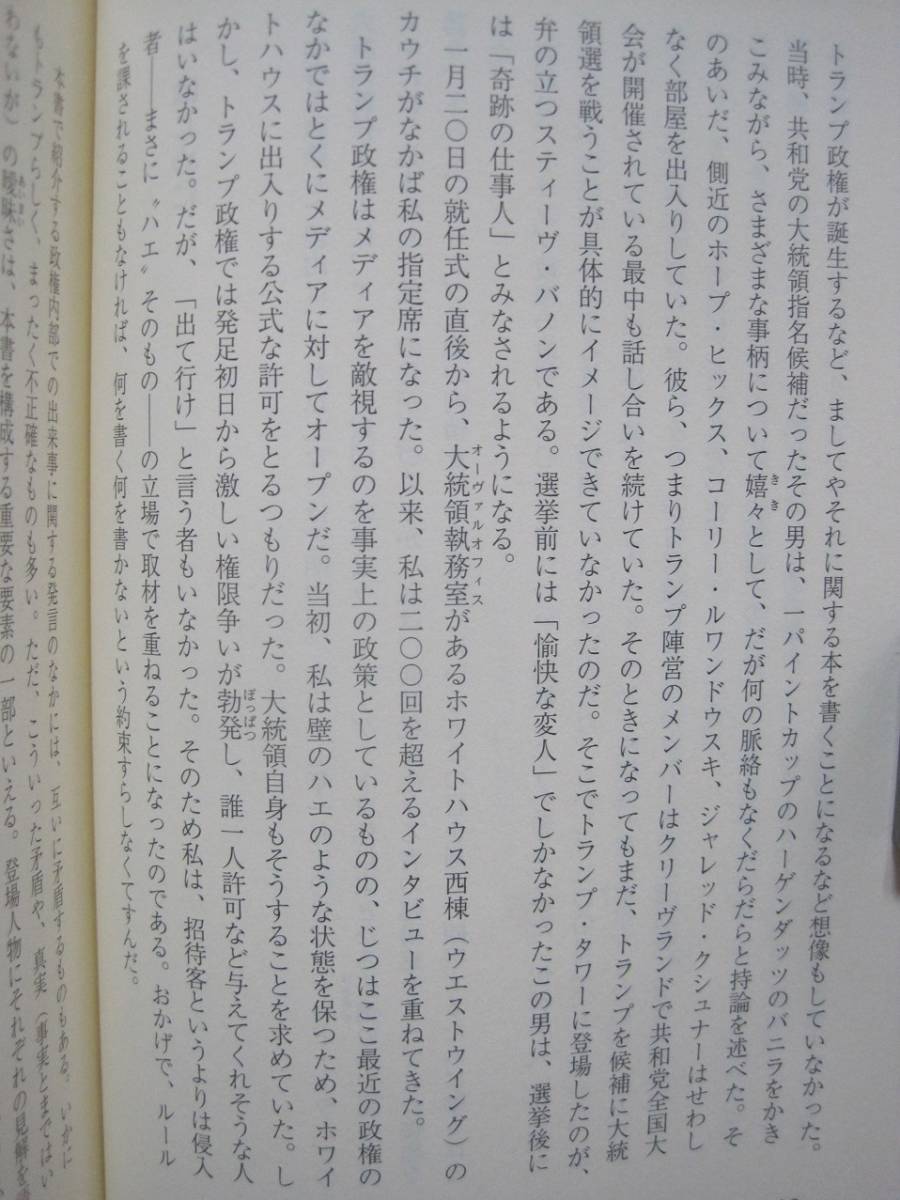 トランプ政権が誕生するなど、ましてやそれに関する本を書くことになるなど想像もしていなかった。
当時、共和党の大統領指名候補だったその男は、一パイントカップのハーゲンダッツのバニラをかき
こみながら、さまざまな事柄について嬉々として、だが何の脈絡もなくだらだらと持論を述べた。そ
のあいだ、側近のホープ・ヒックス、コーリー・ルワンドウスキ、ジャレッド・クシュナーはせわし
なく部屋を出入りしていた。彼ら、つまりトランプ陣営のメンバーはクリーヴランドで共和党全国大
会が開催されている最中も話し合いを続けていた。そのときになってもまだ、トランプを候補に大統
領選を戦うことが具体的にイメージできていなかったのだ。そこでトランプ・タワーに登場したのが、
弁の立つスティーヴ・バノンである。選挙前には「愉快な変人」でしかなかったこの男は、選挙後に
は「奇跡の仕事人」とみなされるようになる。
一月二〇日の就任式の直後から、大統領執務室があるホワイトハウス西棟（ウエストウイング）の
カウチがなかば私の指定席になった。以来、私は二〇〇回を超えるインタビューを重ねてきた。
トランプ政権はメディアを敵視するのを事実上の政策としているものの、じつはここ最近の政権の
なかではとくにメディアに対してオープンだ。当初、私は壁のハエのような状態を保つため、ホワイ
トハウスに出入りする公式な許可をとるつもりだった。大統領自身もそうすることを求めていた。し
かし、トランプ政権では発足初日から激しい権限争いが勃発し、誰一人許可など与えてくれそうな人
はいなかった。だが、「出て行け」と言う者もいなかった。そのため私は、招待客というよりは侵入
者――まさに〝ハエ〟そのもの――の立場で取材を重ねることになったのである。おかげで、ルール
を課されることもなければ、何を書く何を書かないという約束すらしなくてすんだ。
本書で紹介する政権内部での出来事に関する発言のなかには、互いに矛盾するものもある。いかに
もトランプらしく、まったく不正確なものも多い。ただ、こういった矛盾や、真実（事実とまではい
わないが）の曖昧さは、本書を構成する重要な要素の一部といえる。登場人物にそれぞれの見解を